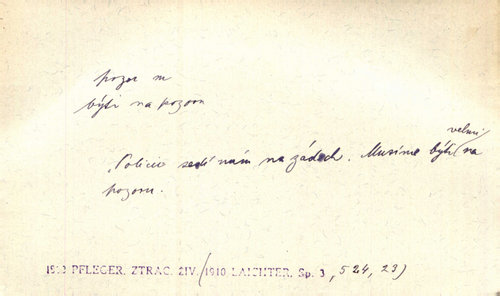 pozor m
býti na pozoru
Policie sedí nám na zádech. Musíme býti velmi na
pozoru.
PFLEGER, ZTRAC. ŽIV. (1910 LAICHTER, Sp. 3, 524, 23)